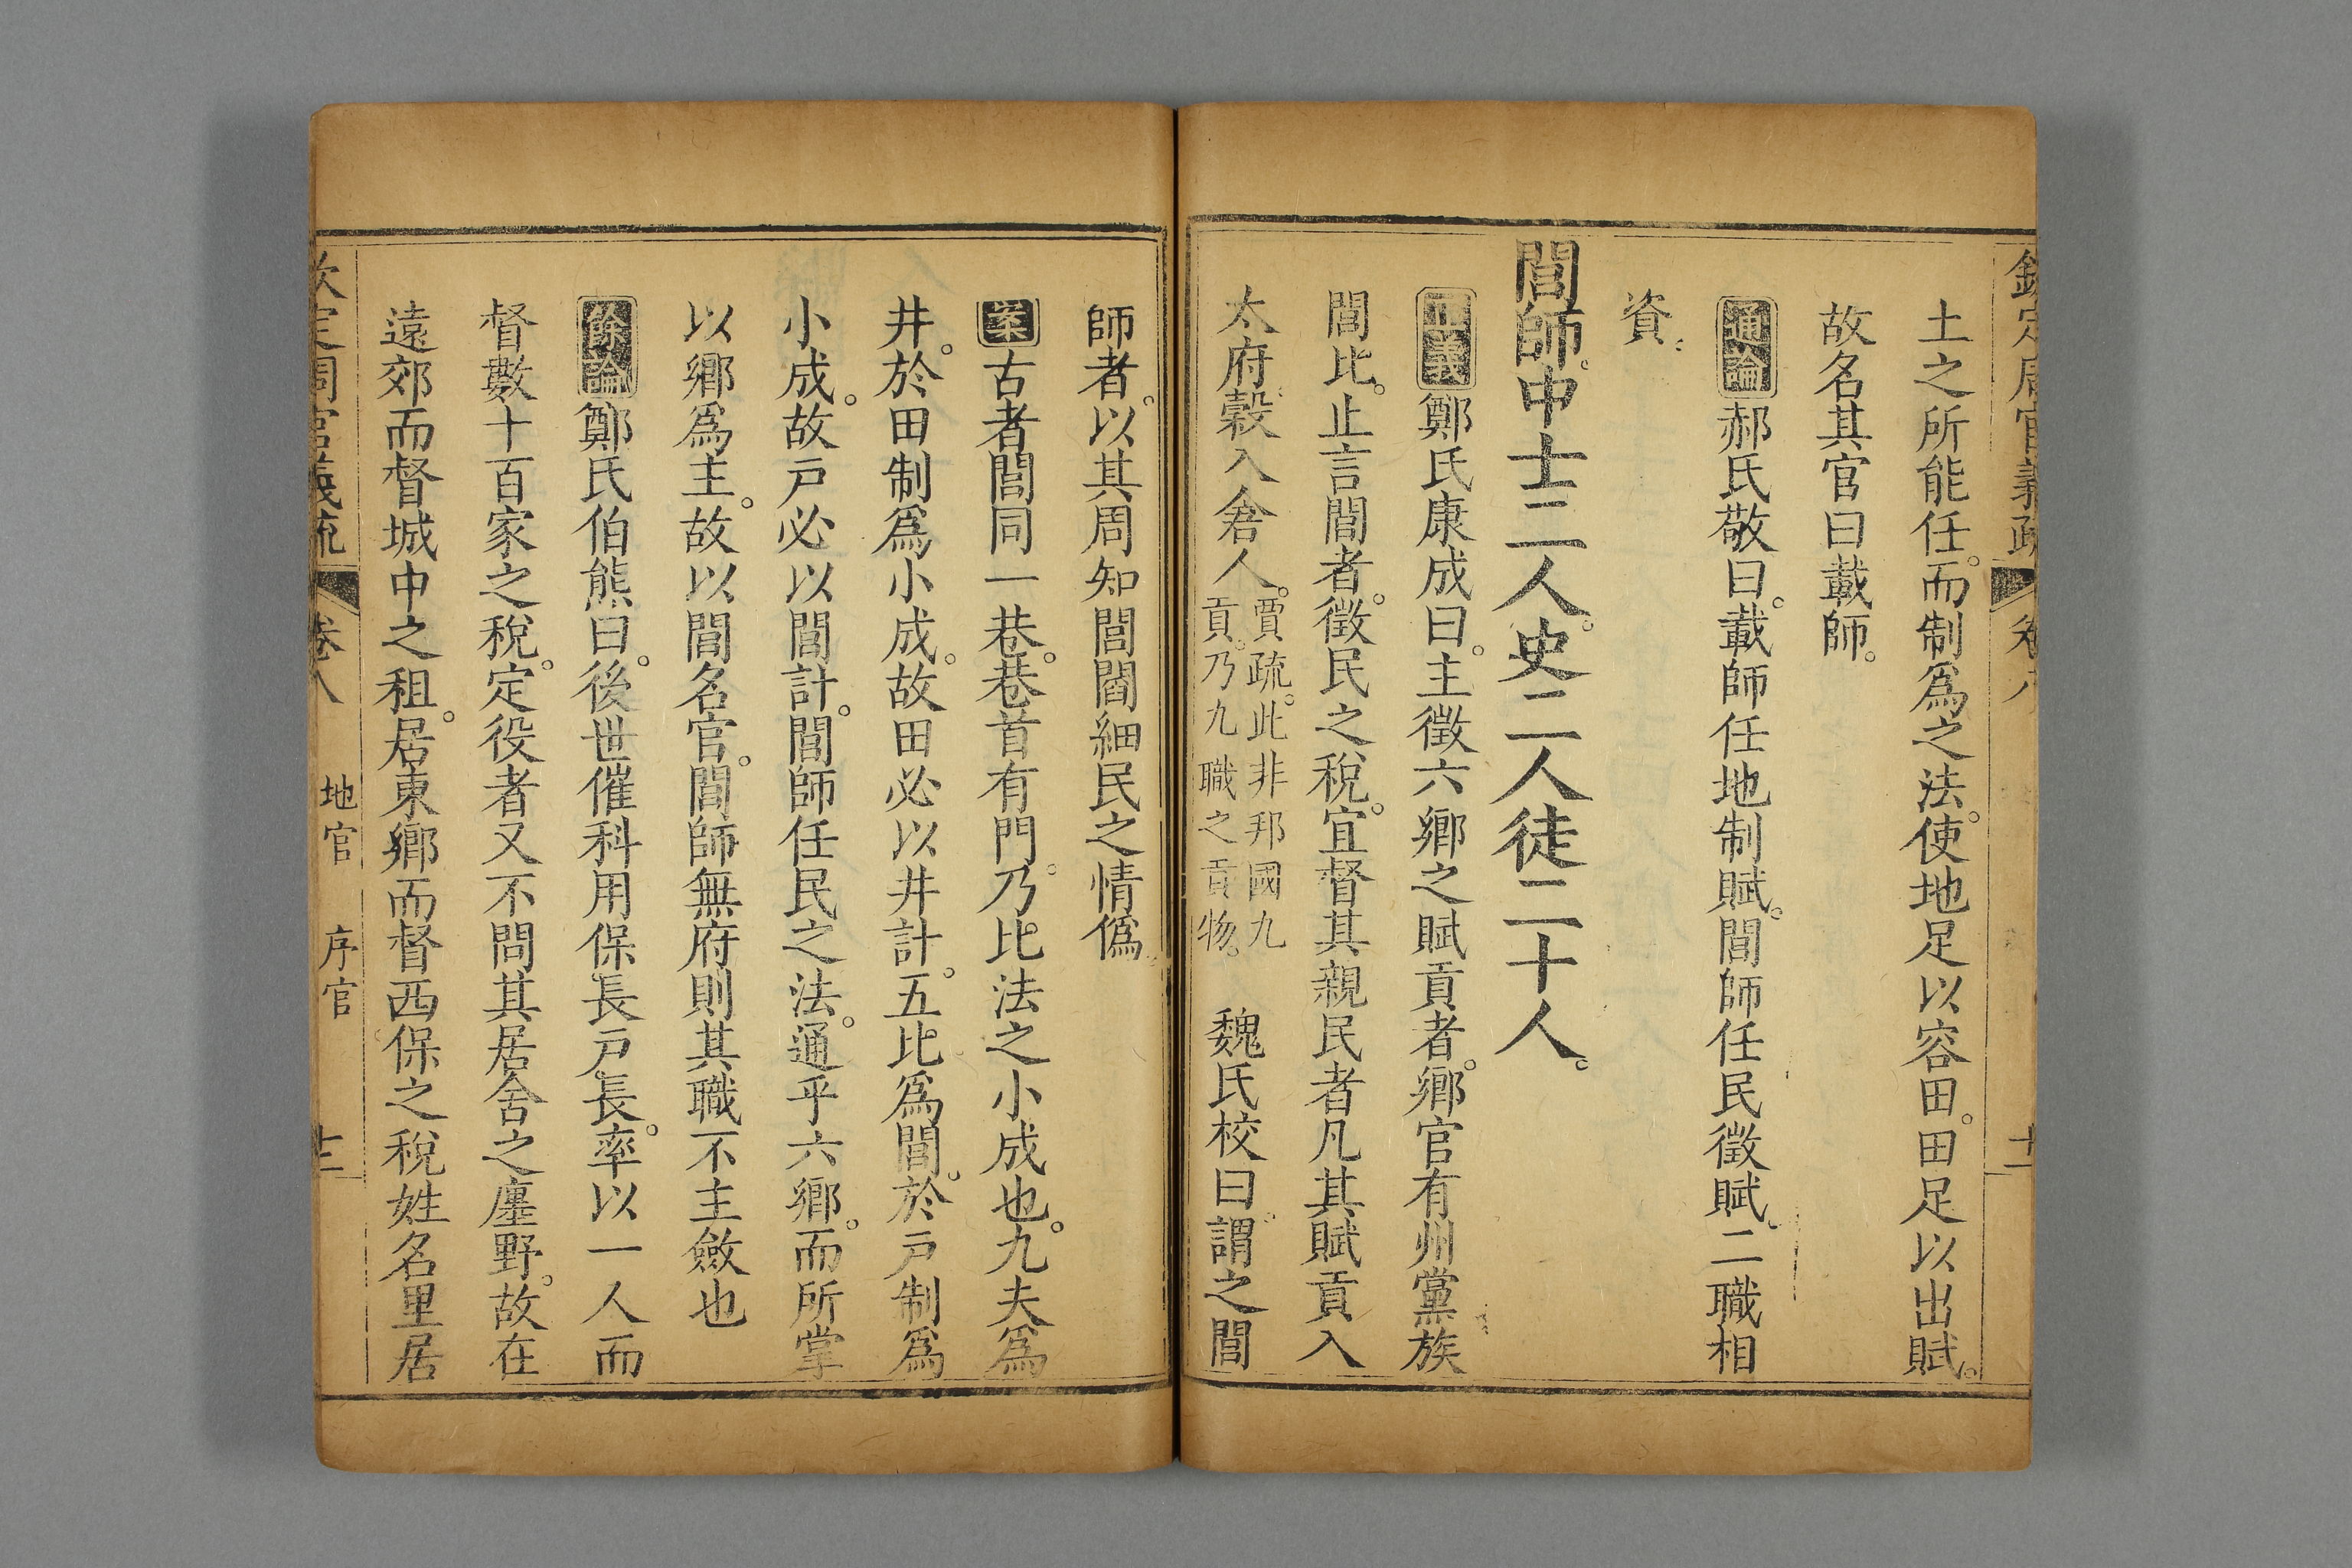 欽定周官義疏 卷八 十一
土之所能任。而制爲之法。使地足以容田。田足以出賦。
故名其官曰載師。
通論 郝氏敬曰。載師任地制賦。閭師任民徵賦。二職相
資。
閭師。中士二人。史二人。徒二十人。
正義 鄭氏康成曰。主徵六鄉之賦貢者。鄉官有州黨族
閭比。止言閭者。徵民之稅。宜督其親民者凡其賦貢入
太府。穀入倉人。賈疏。此非邦國九
貢。乃九職之貢物。 魏氏校曰。謂之閭
師者。以其周知閭閻細民之情僞。
案 古者閭同一巷。巷首有門。乃比法之小成也。九夫爲
井。於田制爲小成。故田必以井計。五比爲閭。於戸制爲
小成。故戸必以閭計。閭師任民之法。通乎六鄉。而所掌
以鄉爲主。故以閭名官。閭師無府則其職不主斂也
餘論 鄭氏伯熊曰。後世催科用保長戸長。率以一人而
督數十百家之稅。定役者又不問其居舍之廛野。故在
遠郊而督城中之租。居東鄉而督西保之稅姓名里居
欽定周官義疏 卷八 地官 序官 十二